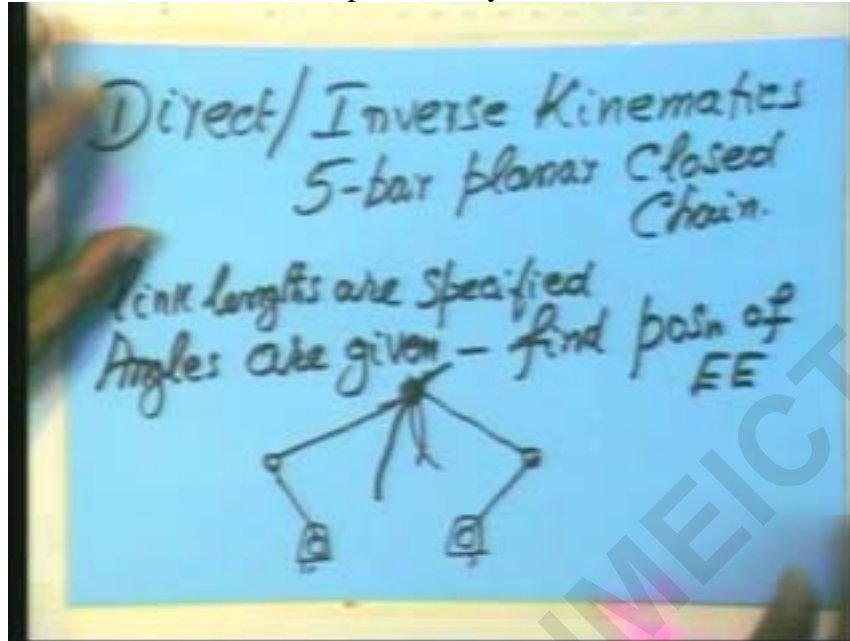 ① Direct/Inverse Kinematics
5-bar planar Closed
Chain.
Link lengths are specified
Angles are given – find posn of
EE